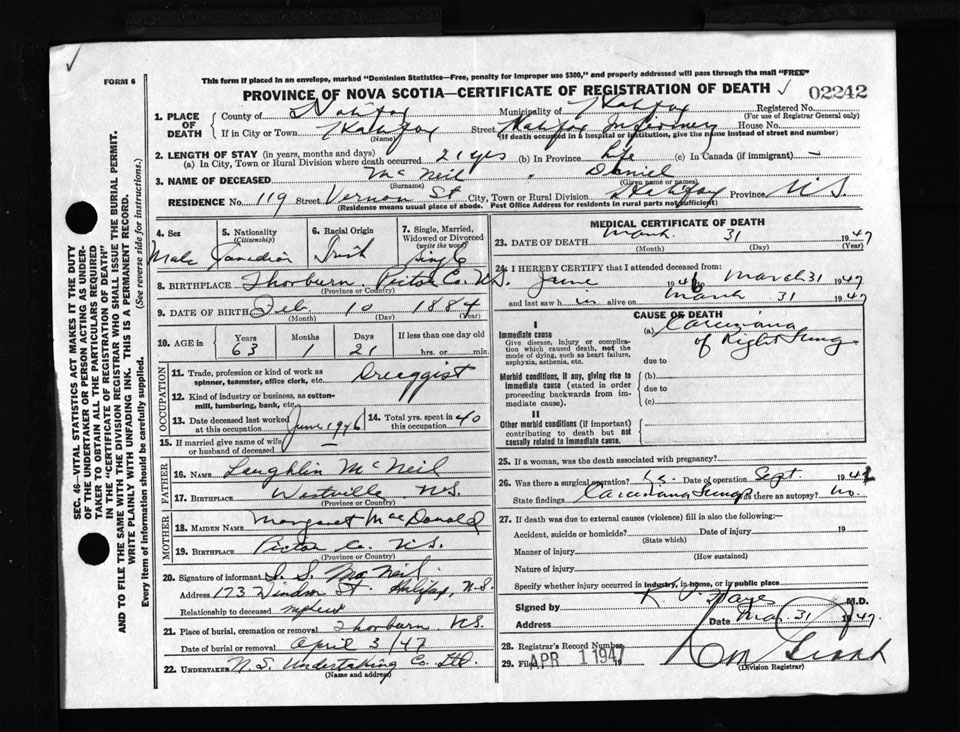 FORM 6
This form if placed in an envelope, marked "Dominion Statistics—Free, penalty for improper use $300," and properly addressed will pass through the mail "FREE"
PROVINCE OF NOVA SCOTIA—CERTIFICATE OF REGISTRATION OF DEATH ✓ 02242
1. PLACE OF DEATH County of Halifax Municipality of Halifax Registered No. (For use of Registrar General only)
If in City or Town Halifax (Name) Street Halifax Infirmary House No.
(If death occurred in a hospital or institution, give the name instead of street and number)
2. LENGTH OF STAY (in years, months and days)
(a) In City, Town or Rural Division where death occurred 21 yrs (b) In Province Life (c) In Canada (if immigrant) —
3. NAME OF DECEASED McNeil (Surname) " Daniel (Given name or names)
RESIDENCE No. 119 Street Vernon St City, Town or Rural Division Halifax Province N.S.
(Residence means usual place of abode. Post Office Address for residents in rural parts not sufficient)
4. Sex Male
5. Nationality (Citizenship) Canadian
6. Racial Origin Irish
7. Single, Married, Widowed or Divorced (write the word) Single
8. BIRTHPLACE Thorburn Pictou Co. N.S. (Province or Country)
9. DATE OF BIRTH Feb. 10 1884 (Month) (Day) (Year)
10. AGE in Years 63 Months 1 Days 21 If less than one day old hrs. or min.
OCCUPATION
11. Trade, profession or kind of work as spinner, teamster, office clerk, etc. Druggist
12. Kind of industry or business, as cotton-mill, lumbering, bank, etc.
13. Date deceased last worked at this occupation June 1946
14. Total yrs. spent in this occupation 40
15. If married give name of wife or husband of deceased —
FATHER
16. NAME Laughlin McNeil
17. BIRTHPLACE Westville N.S. (Province or Country)
MOTHER
18. MAIDEN NAME Margaret MacDonald
19. BIRTHPLACE Pictou Co. N.S. (Province or Country)
20. Signature of informant McNeil
Address 173 Windsor St. Halifax, N.S.
Relationship to deceased nephew
21. Place of burial, cremation or removal Thorburn N.S.
Date of burial or removal April 3/47
22. UNDERTAKER N.S. Undertaking Co. Ltd. (Name and address)
MEDICAL CERTIFICATE OF DEATH
23. DATE OF DEATH March 31 1947 (Month) (Day)
24. I HEREBY CERTIFY that I attended deceased from:
June 1946 to March 31 1947
and last saw him alive on March 31 1947
CAUSE OF DEATH
I
Immediate cause
Give disease, injury or complication which caused death, not the mode of dying, such as heart failure, asphyxia, asthenia, etc.
(a) Carcinoma of Right Lung
due to
Morbid conditions, if any, giving rise to immediate cause (stated in order proceeding backwards from immediate cause).
(b)
due to
(c)
II
Other morbid conditions (if important) contributing to death but not causally related to immediate cause.
25. If a woman, was the death associated with pregnancy?
26. Was there a surgical operation? Yes. Date of operation Sept. 1946
State findings Carcinoma Lung Was there an autopsy? No.
27. If death was due to external causes (violence) fill in also the following:—
Accident, suicide or homicide? (State which) Date of injury 19
Manner of injury (How sustained)
Nature of injury
Specify whether injury occurred in industry, in home, or in public place
Signed by M.D.
Address Date Mar. 31 1947.
28. Registrar's Record Number
29. Filed APR 1 1947 (Division Registrar)
SEC. 46—VITAL STATISTICS ACT MAKES IT THE DUTY
OF THE UNDERTAKER OR PERSON ACTING AS UNDER-
TAKER TO OBTAIN ALL THE PARTICULARS REQUIRED
IN THE "CERTIFICATE OF REGISTRATION OF DEATH"
AND TO FILE THE SAME WITH THE DIVISION REGISTRAR WHO SHALL ISSUE THE BURIAL PERMIT.
WRITE PLAINLY WITH UNFADING INK. THIS IS A PERMANENT RECORD.
Every item of information should be carefully supplied. (See reverse side for instructions.)